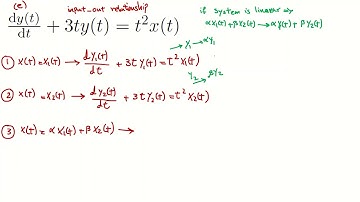 (e) input_out relationship
dy(t)/dt + 3ty(t) = t²x(t)
if system is linear ⇒
αX₁(t)+βX₂(t) → αY₁(t) + βY₂(t)
① X(t)=X₁(t) → dY₁(t)/dt + 3tY₁(t) = t²X₁(t)
→ X₁ → αY₁
Y₂ → βY₂
② X(t) = X₂(t) → dY₂(t)/dt + 3tY₂(t) = t²X₂(t)
③ X(t) = αX₁(t) + βX₂(t) →